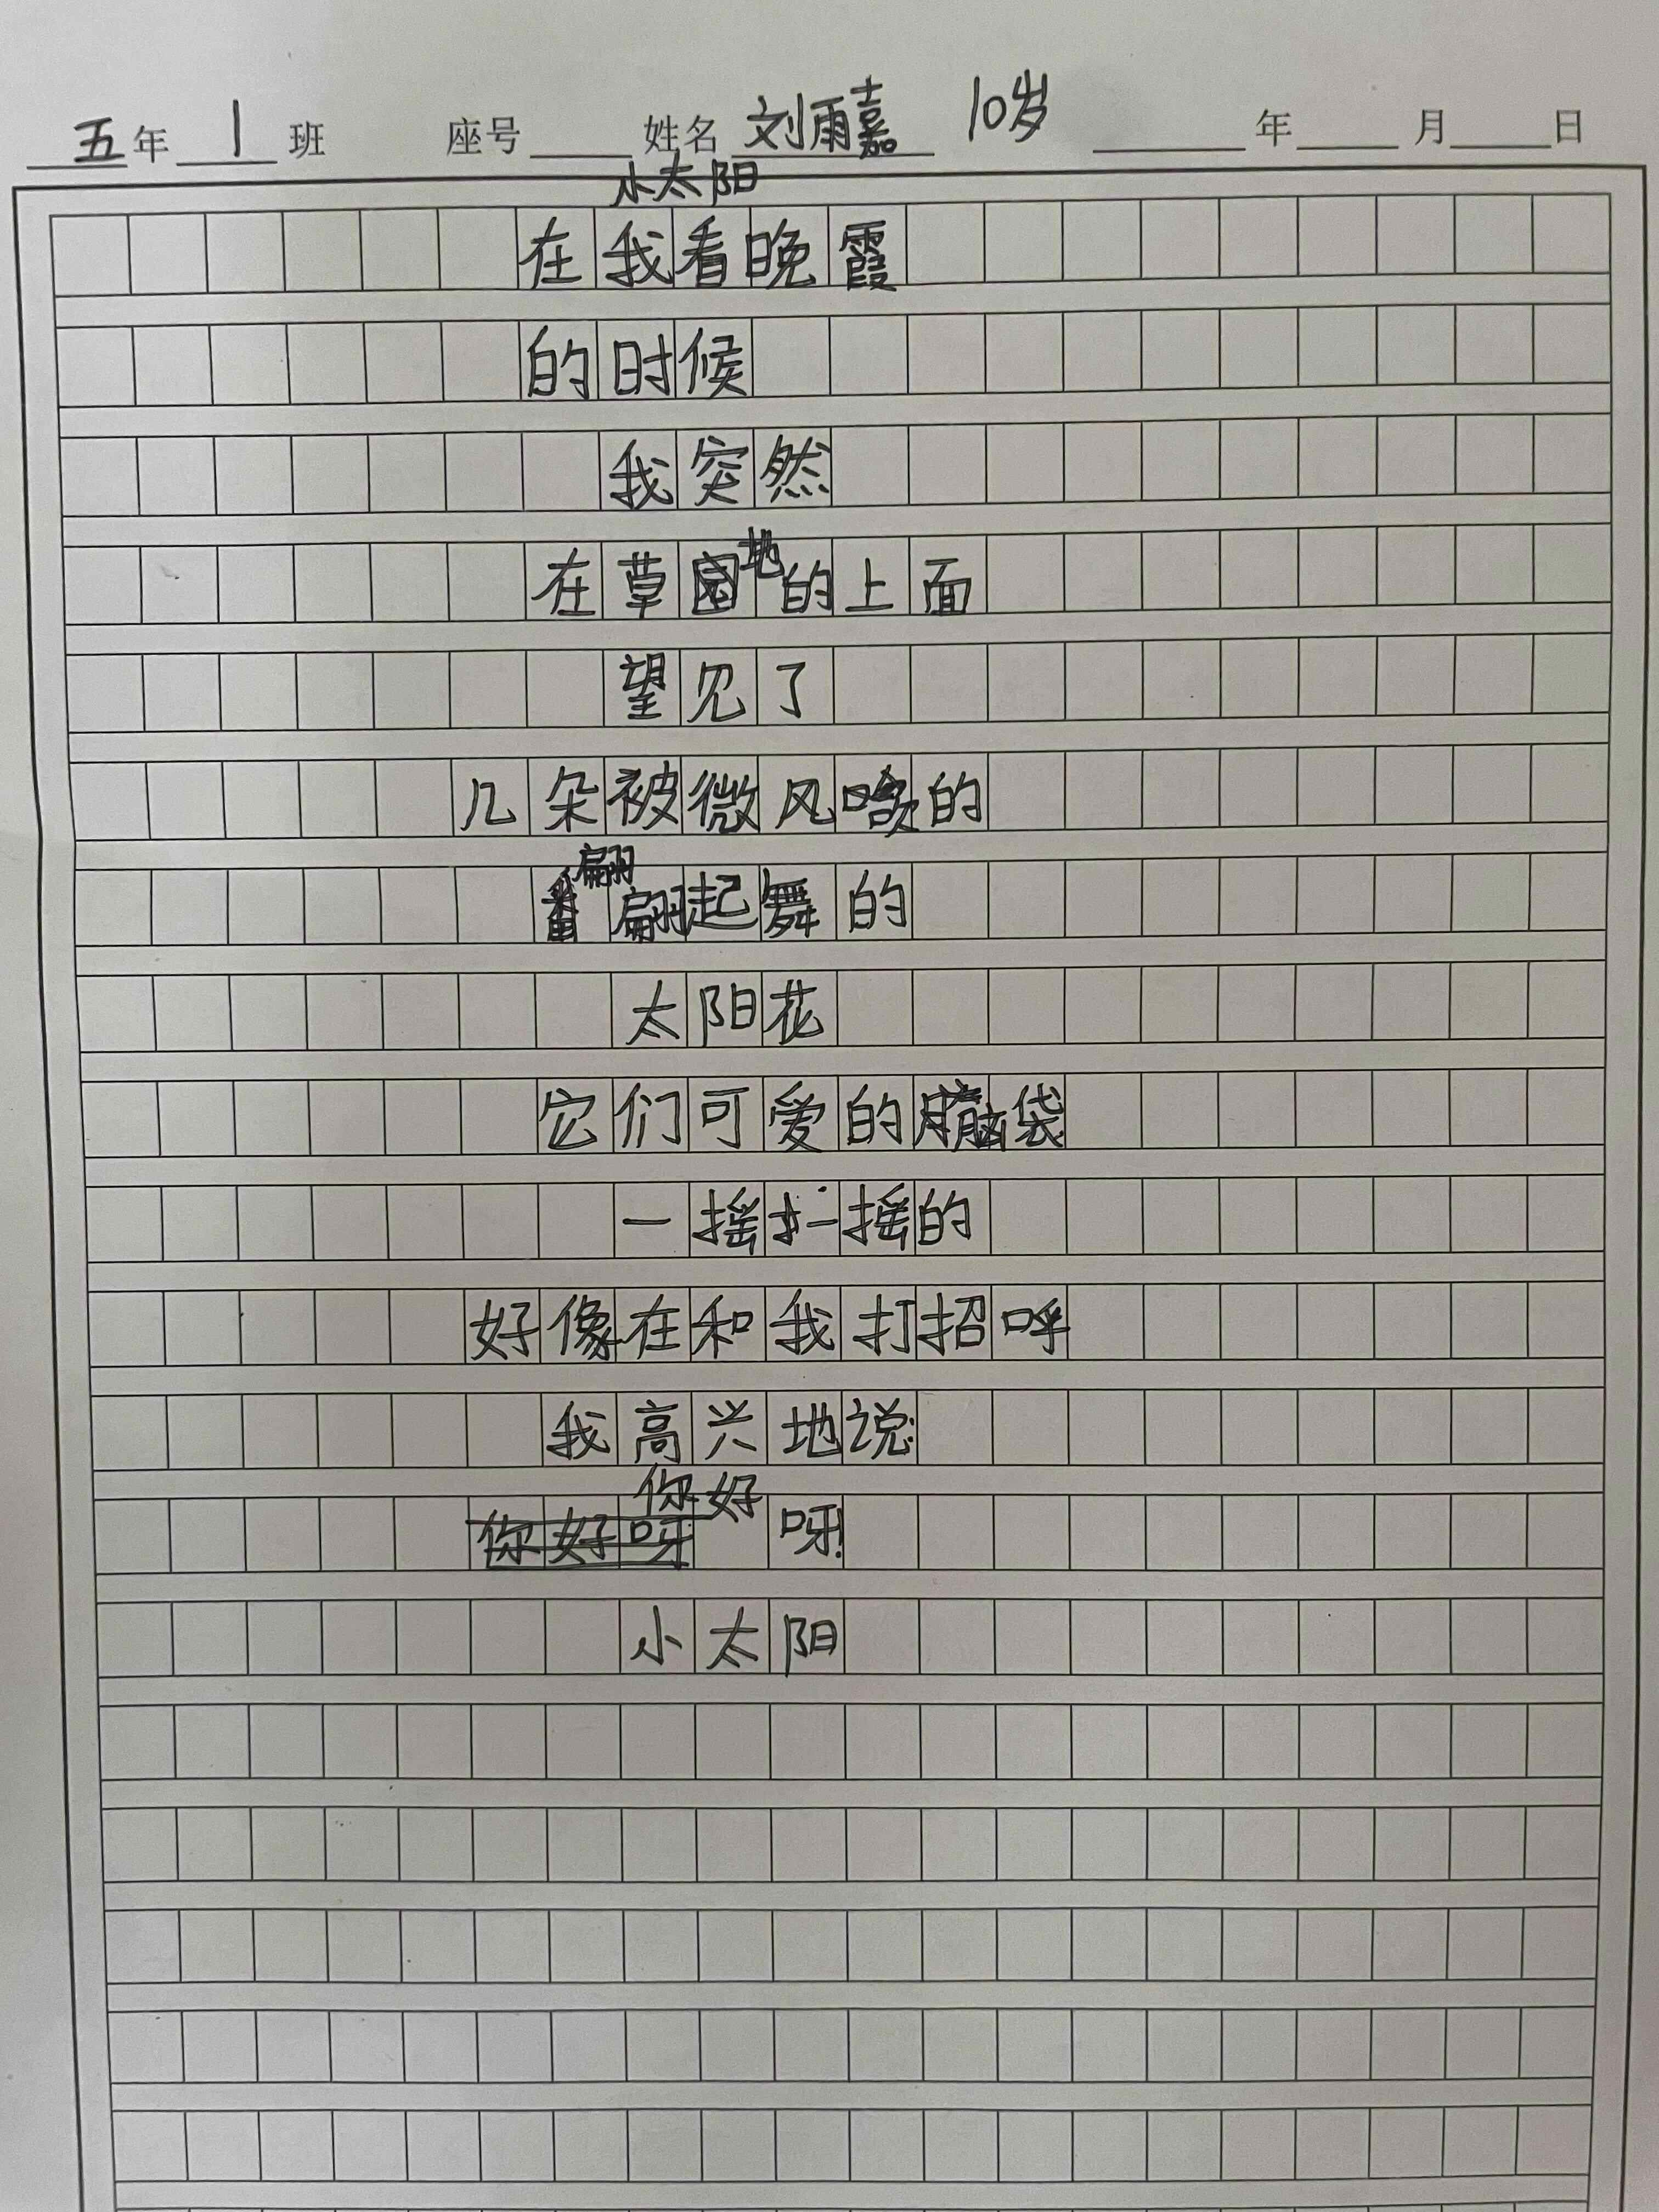 五年 1 班 座号 姓名 刘雨嘉 10岁 年 月 日
小太阳
在我看晚霞
的时候
我突然
在草地的上面
望见了
几朵被微风吹的
翩翩起舞的
太阳花
它们可爱的脑袋
一摇一摇的
好像在和我打招呼
我高兴地说:
你好
你好呀 呀!
小太阳